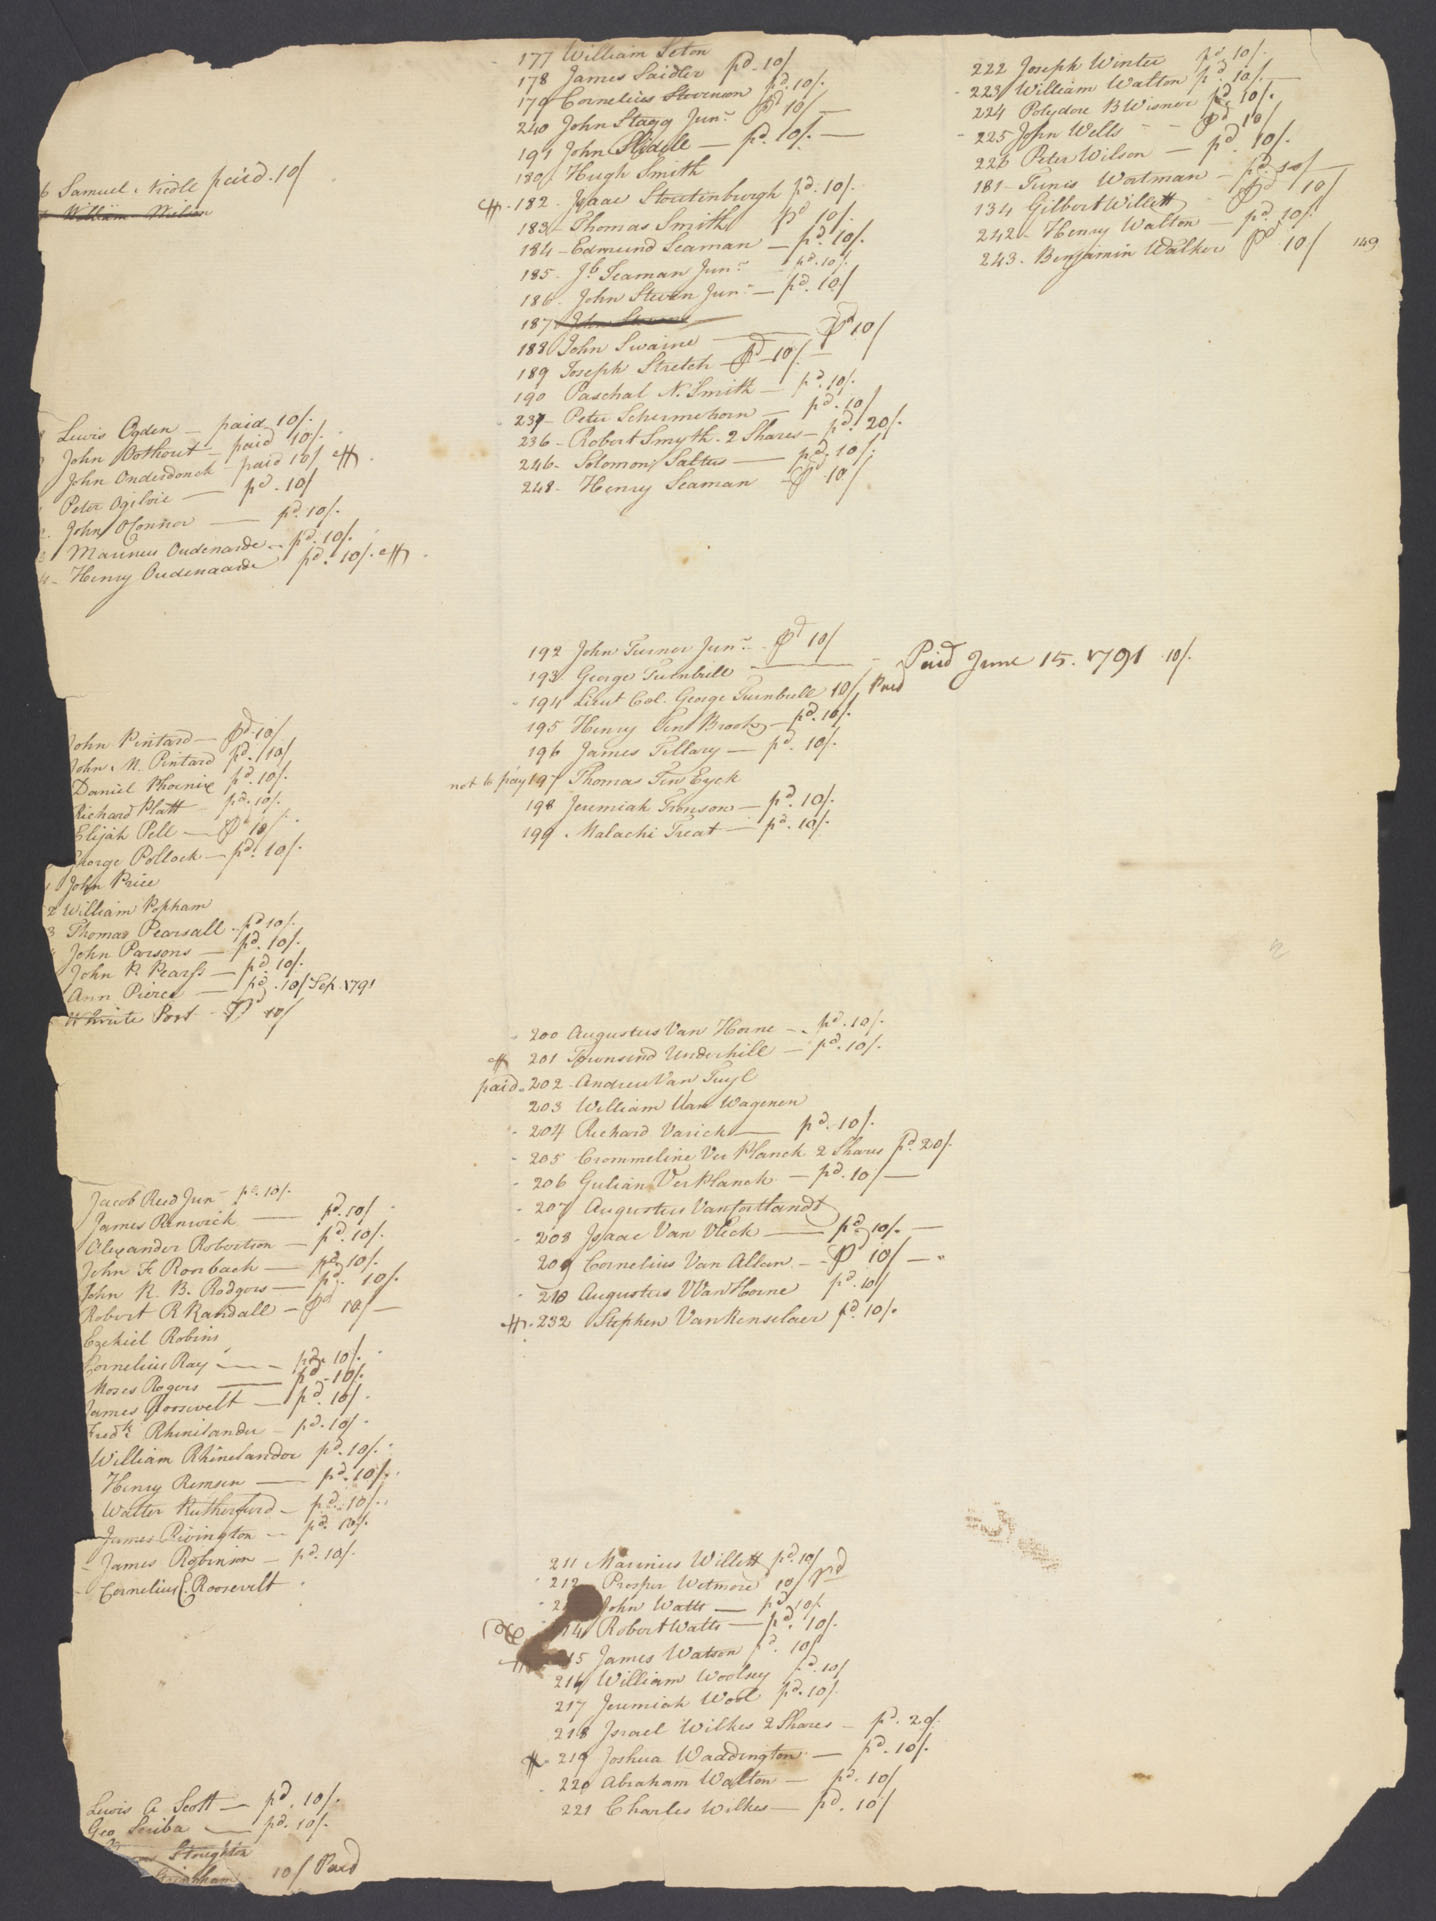 Samuel Nicoll paird. 10/
William Nielson
Lewis Ogden — paid 10/.
John Oothout — paid 10/.
John Onderdonck paid 10/
Peter Ogilvie — pd. 10/
John OConnor — pd. 10/.
Marinus Oudenarde — pd. 10/.
Henry Oudenaarde pd. 10/.
John Pintard — Pd 10/
John M. Pintard pd. 10/
Daniel Phoenix pd. 10/.
Richard Platt pd. 10/.
Elijah Pell — Pd 10/
George Pollock — pd. 10/.
John Price
2 William Popham
3 Thomas Pearsall pd 10/.
John Parsons — pd. 10/.
John P. Pearss — pd. 10/.
Ann Pierce — pd. 10/ Sep. 1791
White Post Pd 10/
Jacob Reed Junr pd. 10/.
James Renwick — pd. 10/
Alexander Robertson — pd. 10/.
John F. Roorbach — pd 10/.
John R. B. Rodgers — pd. 10/.
Robert R Randall — Pd 10/ —
Ezekiel Robins
Cornelius Ray — pd. 10/.
Moses Rogers — pd. 10/.
James Roosevelt — pd. 10/
Fredk Rhinelander — pd. 10/
William Rhinelander pd. 10/.
Henry Remsen — pd. 10/.
Walter Rutherfurd — pd. 10/.
James Rivington — pd. 10/.
James Robinson — pd. 10/.
Cornelius C. Roosevelt
Lewis A Scott — pd. 10/.
Geo Scriba — pd. 10/.
Stoughton
10/ Paid
177 William Seton
178 James Saidler pd. 10/
179 Cornelius Stevenson pd. 10/.
240 John Stagg Junr Pd 10/ —
191 John Slidell — pd. 10/. —
180 Hugh Smith
182. Isaac Stoutenburgh pd. 10/.
183 — Thomas Smith Pd 10/.
184 — Edmund Seaman — pd. 10/.
185 - Jb Seaman Junr pd. 10/.
186 - John Steven Junr — pd. 10/
187 John Stevens
188 John Swaine — Pd 10/
189 Joseph Stretch — Pd 10/ —
190 Paschal N. Smith — pd. 10/.
237 — Peter Schermehorn — pd. 10/
236 — Robert Smyth. 2 Shares — pd. 20/.
246 — Solomon Saltus — pd. 10/.
248 — Henry Seaman — Pd 10/
192 John Turner Junr Pd 10/
193 George Turnbull — Paid June 15. 1791 10/.
194 Lieut Col. George Turnbull 10/ Paid
195 Henry Ten Brook — pd. 10/.
196 James Tillary — pd. 10/.
not to pay 197 Thomas Ten Eyck
198 Jeremiah Tronson — pd. 10/.
199 . Malachi Treat — pd. 10/.
200 Augustus Van Horne — pd. 10/.
201 Townsend Underhill — pd. 10/.
paid. 202 Andrew Van Tuyl
203 William Van Wagenen
204 Richard Varick — pd. 10/.
205 Crommeline Ver Planck 2 Shares pd. 20/.
206 Gulian Ver Planck — pd. 10/ —
207 Augustus Van Cortlandt
208 Isaac Van Vleck — pd. 10/. —
209 Cornelius Van Allen — Pd 10/ —
210 Augustus V Van Horne pd. 10/
232 Stephen Van Renselaer pd 10/.
211 Marinus Willett pd. 10/
212 Prosper Wetmore 10/ Pd
John Watts — pd 10/.
14 Robert Watts — pd. 10/.
15 James Watson pd. 10/
216 William Woolsey pd. 10/
217 Jeremiah Wool pd. 10/.
218 Israel Wilkes 2 Shares — pd. 20/.
219 Joshua Waddington — pd. 10/.
220 Abraham Walton — pd. 10/
221 Charles Wilkes — pd. 10/
222 Joseph Winter pd 10/.
223 William Walton pd. 10/. —
224 Polydore B Wisner pd. 10/.
225 John Wells — Pd 10/
226 Peter Wilson — pd. 10/.
181 — Tunis Wortman — pd. 10/ —
134 Gilbert Willett Pd 10/
242 — Henry Walton — pd. 10/.
243 . Benjamin Walker Pd 10/ 149
2